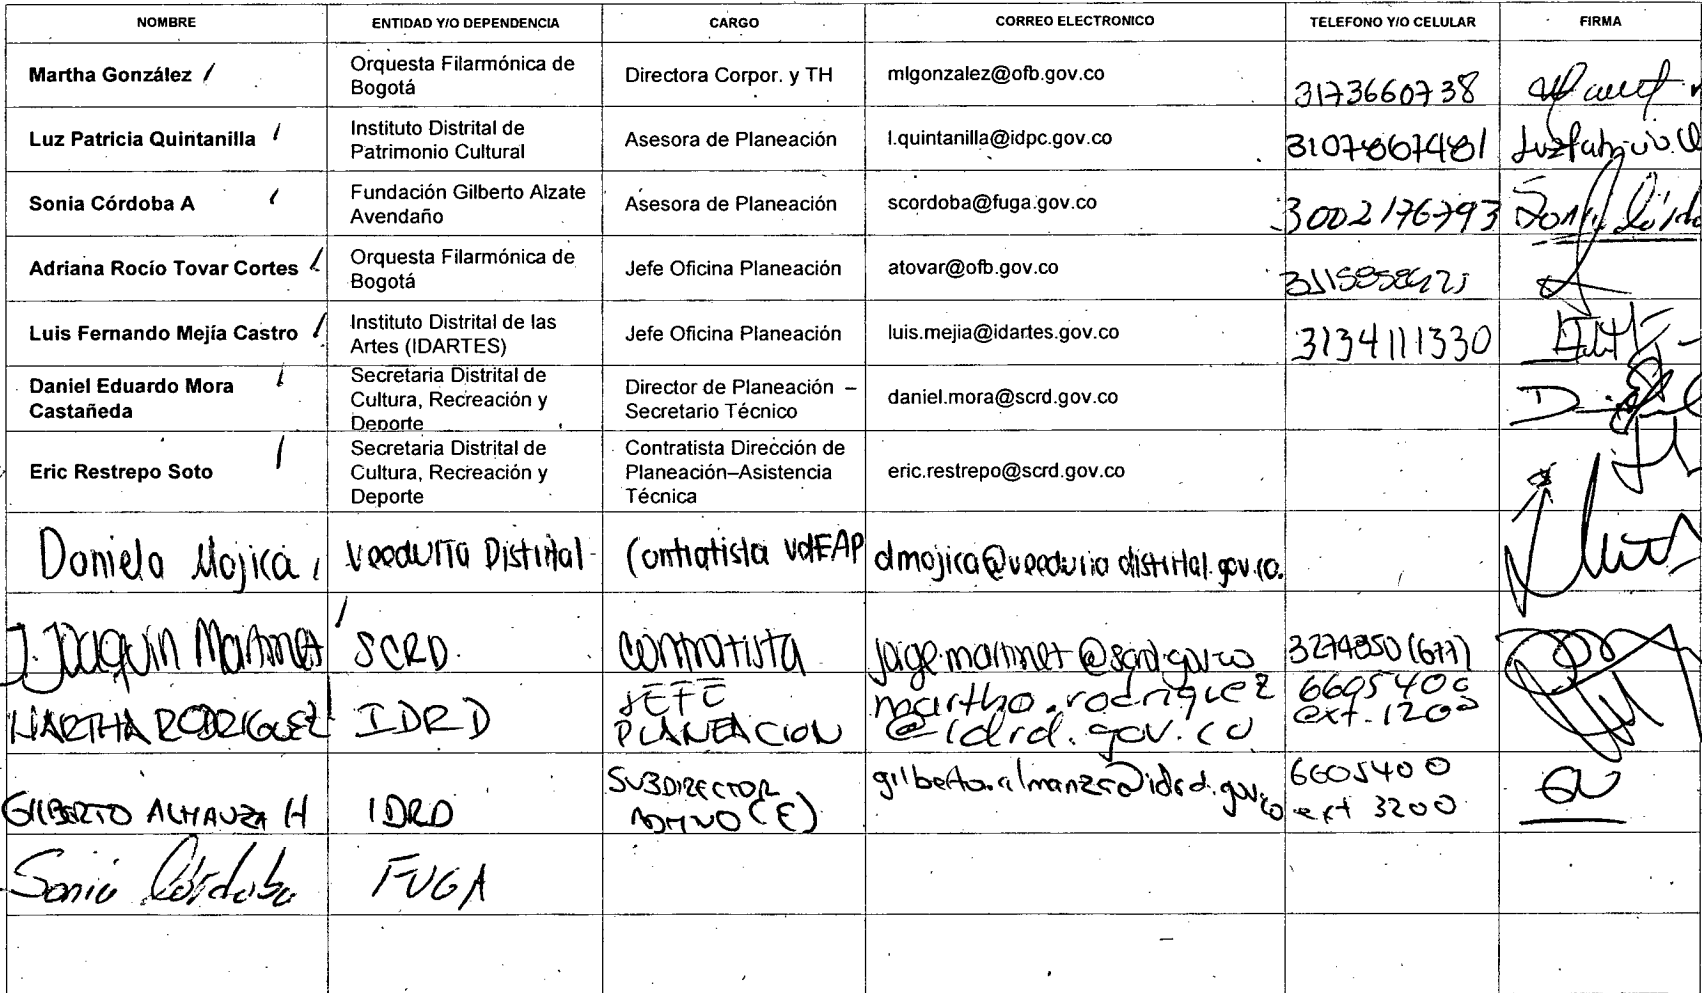 NOMBRE ENTIDAD Y/O DEPENDENCIA CARGO CORREO ELECTRONICO TELEFONO Y/O CELULAR FIRMA
Martha González
Orquesta Filarmónica de
Bogotá
Directora Corpor. y TH
mlgonzalez@ofb.gov.co
3173660738
Luz Patricia Quintanilla
Instituto Distrital de
Patrimonio Cultural
Asesora de Planeación
l.quintanilla@idpc.gov.co
Sonia Córdoba A
Fundación Gilberto Alzate
Avendaño
Asesora de Planeación
scordoba@fuga.gov.co
3002176793
Adriana Rocío Tovar Cortes
Orquesta Filarmónica de
Bogotá
Jefe Oficina Planeación
atovar@ofb.gov.co
Luis Fernando Mejía Castro
Instituto Distrital de las
Artes (IDARTES)
Jefe Oficina Planeación
luis.mejia@idartes.gov.co
3134111330
Daniel Eduardo Mora
Castañeda
Secretaria Distrital de
Cultura, Recreación y
Deporte
Director de Planeación –
Secretario Técnico
daniel.mora@scrd.gov.co
Eric Restrepo Soto
Secretaria Distrital de
Cultura, Recreación y
Deporte
Contratista Dirección de
Planeación–Asistencia
Técnica
eric.restrepo@scrd.gov.co
Daniela Mojica
Veeduría Distrital
Contratista VdEAP
dmojica@veeduriadistrital.gov.co.
J. Joaquin Martinez
SCRD.
Contratista
3274850 (677)
MARTHA RODRIGUEZ
IDRD
JEFE
PLANEACION
martha.rodriguez
@idrd.gov.co
6605400
ext. 1200
GILBERTO ALMANZA H
IDRD
SUBDIRECTOR
ADMIVO (E)
gilberto.almanza@idrd.gov.co
6605400
ext 3200
Sonia Córdoba
FUGA